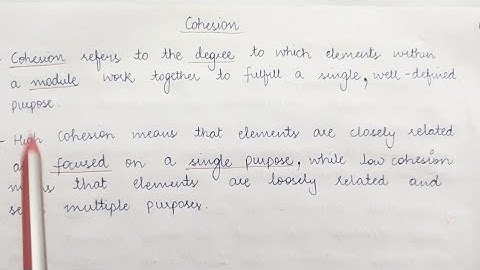 Cohesion
- Cohesion refers to the degree to which elements within
a module work together to fulfill a single, well-defined
purpose.
- High cohesion means that elements are closely related
focused on a single purpose, while low cohesion
that elements are loosely related and
multiple purposes.